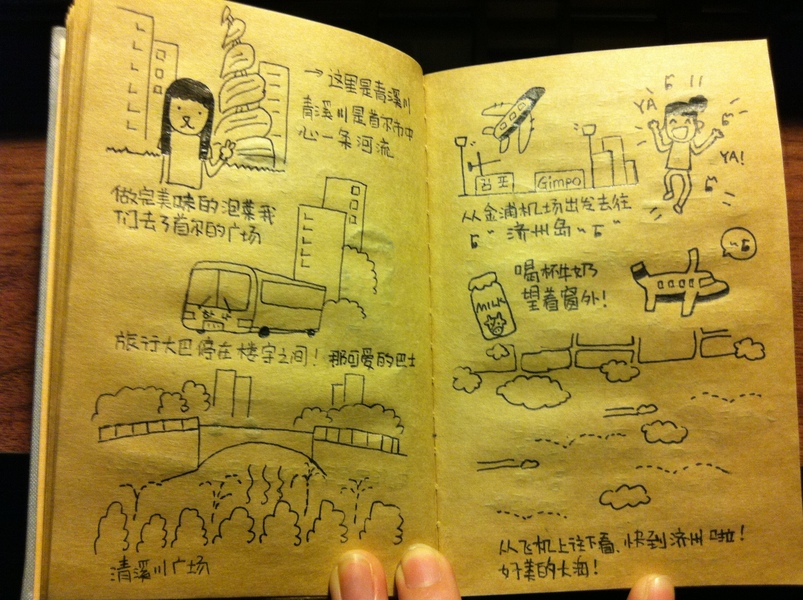 →这里是青溪川
青溪川是首尔市中
心一条河流
做完美味的泡菜我
们去了首尔的广场
旅行大巴停在楼宇之间！那可爱的巴士
清溪川广场
YA
YA!
김포
Gimpo
从金浦机场出发去往
济州岛
喝杯牛奶
望着窗外！
MILK
从飞机上往下看、快到济州啦！
好美的大海！